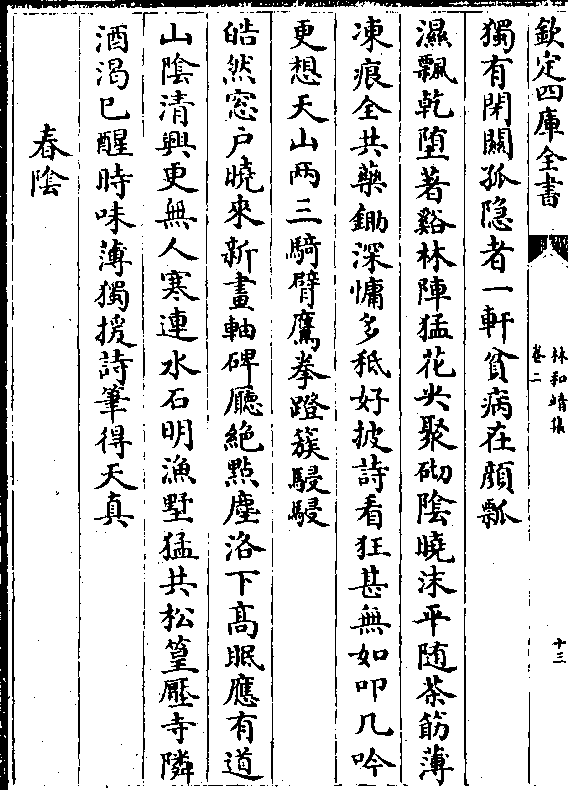 欽定四庫全書
林和靖集
卷二
十三
獨有閉關孤隐者一軒貧病在顔瓢
濕飄乾墮著谿林陣猛花尖聚砌陰曉沫平随茶筯薄
凍痕全共藥鋤深慵多秪好披詩看狂甚無如叩几吟
更想天山兩三騎臂鷹拳蹬簇駸駸
皓然窓户曉來新畫軸碑廳絶㸃塵洛下髙眠應有道
山陰清興更無人寒連水石明漁墅猛共松篁壓寺隣
酒渴已醒時味薄獨援詩筆得天真
春陰